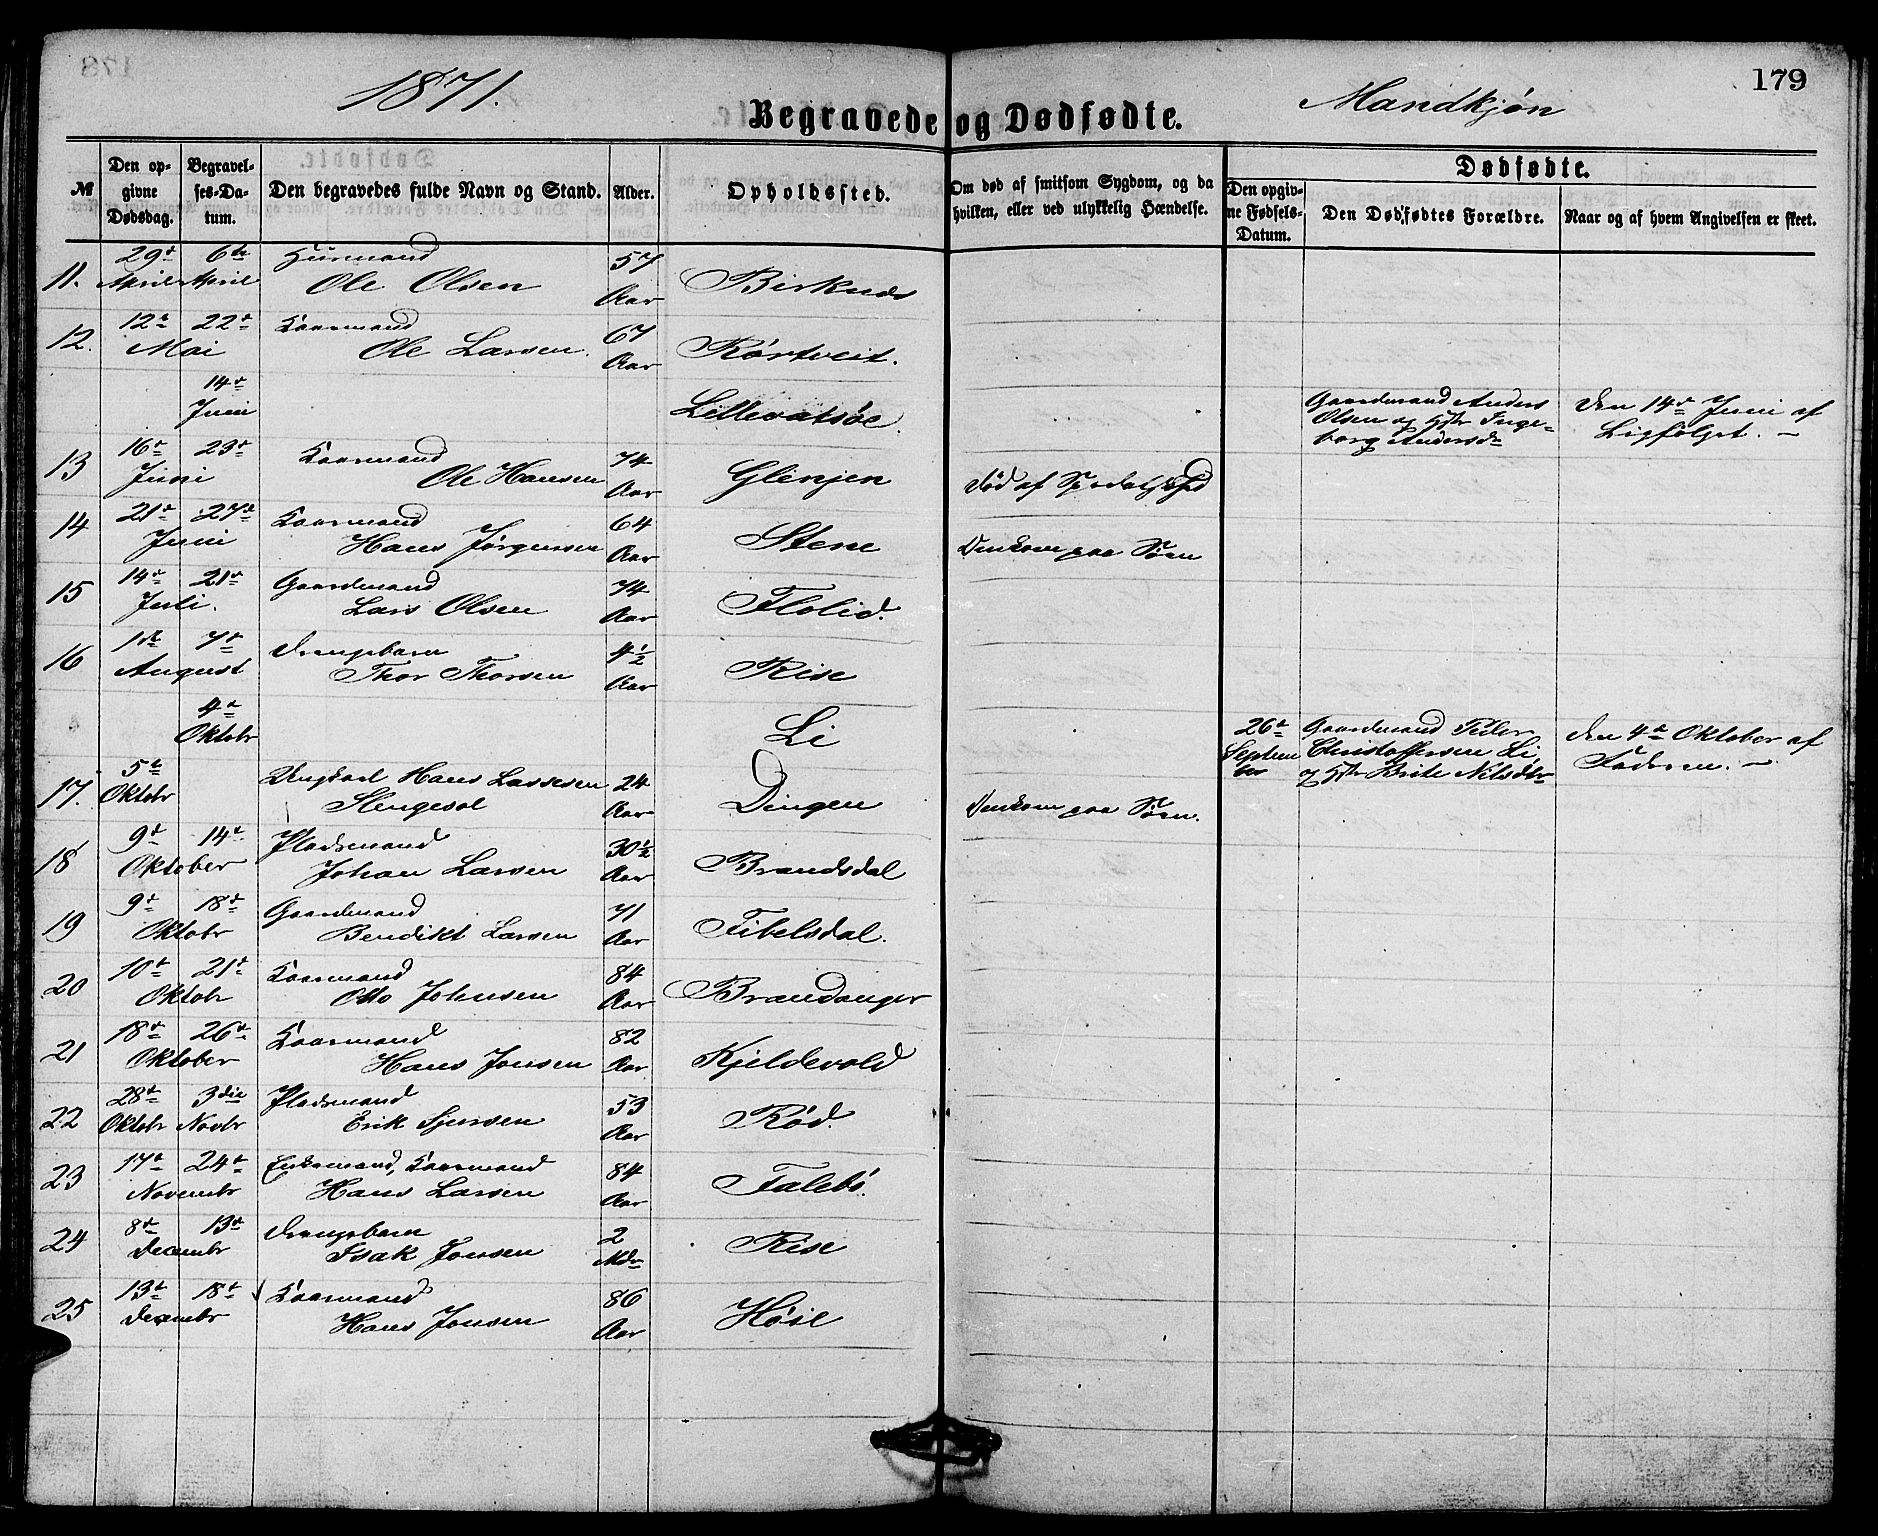 1871.
Begravede og Dødfødte.
Mandkjøn
179
№
Den opgivne Dødsdag.
Begravelses-Datum.
Den begravedes fulde Navn og Stand.
Alder.
Opholdssted.
Om død af smitsom Sygdom, og da hvilken, eller ved ulykkelig Hændelse.
Dødfødte.
Den opgivne Fødsels-Datum.
Den Dødfødtes Forældre.
Naar og af hvem Angivelsen er skeet.
11. 29de April 6te April Huusmand Ole Olsen 57 Aar Birknes
12. 12te 22de Mai Kaarmand Ole Larsen. 67 Aar Rørtveit.
14de Juni Lillevatsøe. Gaardmand Anders Olsen og Hstr Ingeborg Andersdr Den 14de Juni af Ligfølget. —
13 16de 23de Juni Kaarmand Ole Hansen 74 Aar Glenjen død af Spedalskhed
14 21de 27de Juni Kaarmand Hans Jørgensen 64 Aar Stene Omkom paa Søen
15 14de 21de Juli. Gaardmand Lars Olsen 74 Aar Flolid.
16 1ste 7de August Drengebarn Thor Thorsen 4½ Aar Rise
4de Oktobr Li 26de September Gaardmand Peder Christoffersen Li, og Hstr Brite Nilsdtr Den 4de Oktober af Faderen. —
17. 5te Oktobr Ungkarl Hans Lassesen Slengesol 24 Aar Dingen Omkom paa Søen.
18 9de 14de Oktober Pladsmand Johan Larsen 30½ Aar Brandsdal
19 9de 18de Oktobr Gaardmand Bendikt Larsen 71 Aar Fibelsdal.
20 10de 21de Oktobr Kaarmand Otto Johnsen 84 Aar Brandanger
21 18de 26de Oktober Kaarmand Hans Jonsen 82 Aar Kjeldevold
22 28de Oktobr 3die Novbr Pladsmand Erik Sjursen 53 Aar Rød.
23 17de 24de Novembr Enkemand, Kaarmand Hans Larsen 84 Aar Falebø.
24 8de 13de Decembr Drengebarn Isak Jonsen 2 Mdr Rise
25 13de 18de Decembr Kaarmand Hans Jonsen 86 Aar Høie